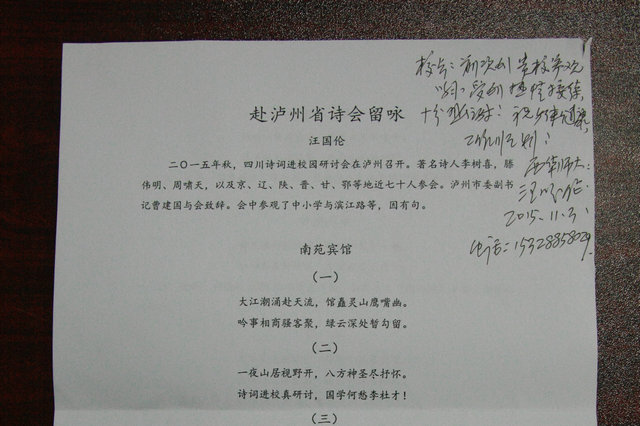 赴泸州省诗会留咏
汪国伦
二〇一五年秋，四川诗词进校园研讨会在泸州召开。著名诗人李树喜，滕
伟明、周啸天，以及京、辽、陕、晋、甘、鄂等地近七十人参会。泸州市委副书
记曹建国与会致辞。会中参观了中小学与滨江路等，因有句。
南苑宾馆
（一）
大江潮涌赴天流，馆矗灵山鹰嘴幽。
吟事相商骚客聚，绿云深处暂勾留。
（二）
一夜山居视野开，八方神圣尽抒怀。
诗词进校真研讨，国学何愁李杜才！
（三）
贵校参观
热情接待
十分
祝
西华师大：
汪国伦
2015.11.3
电话：15328858029